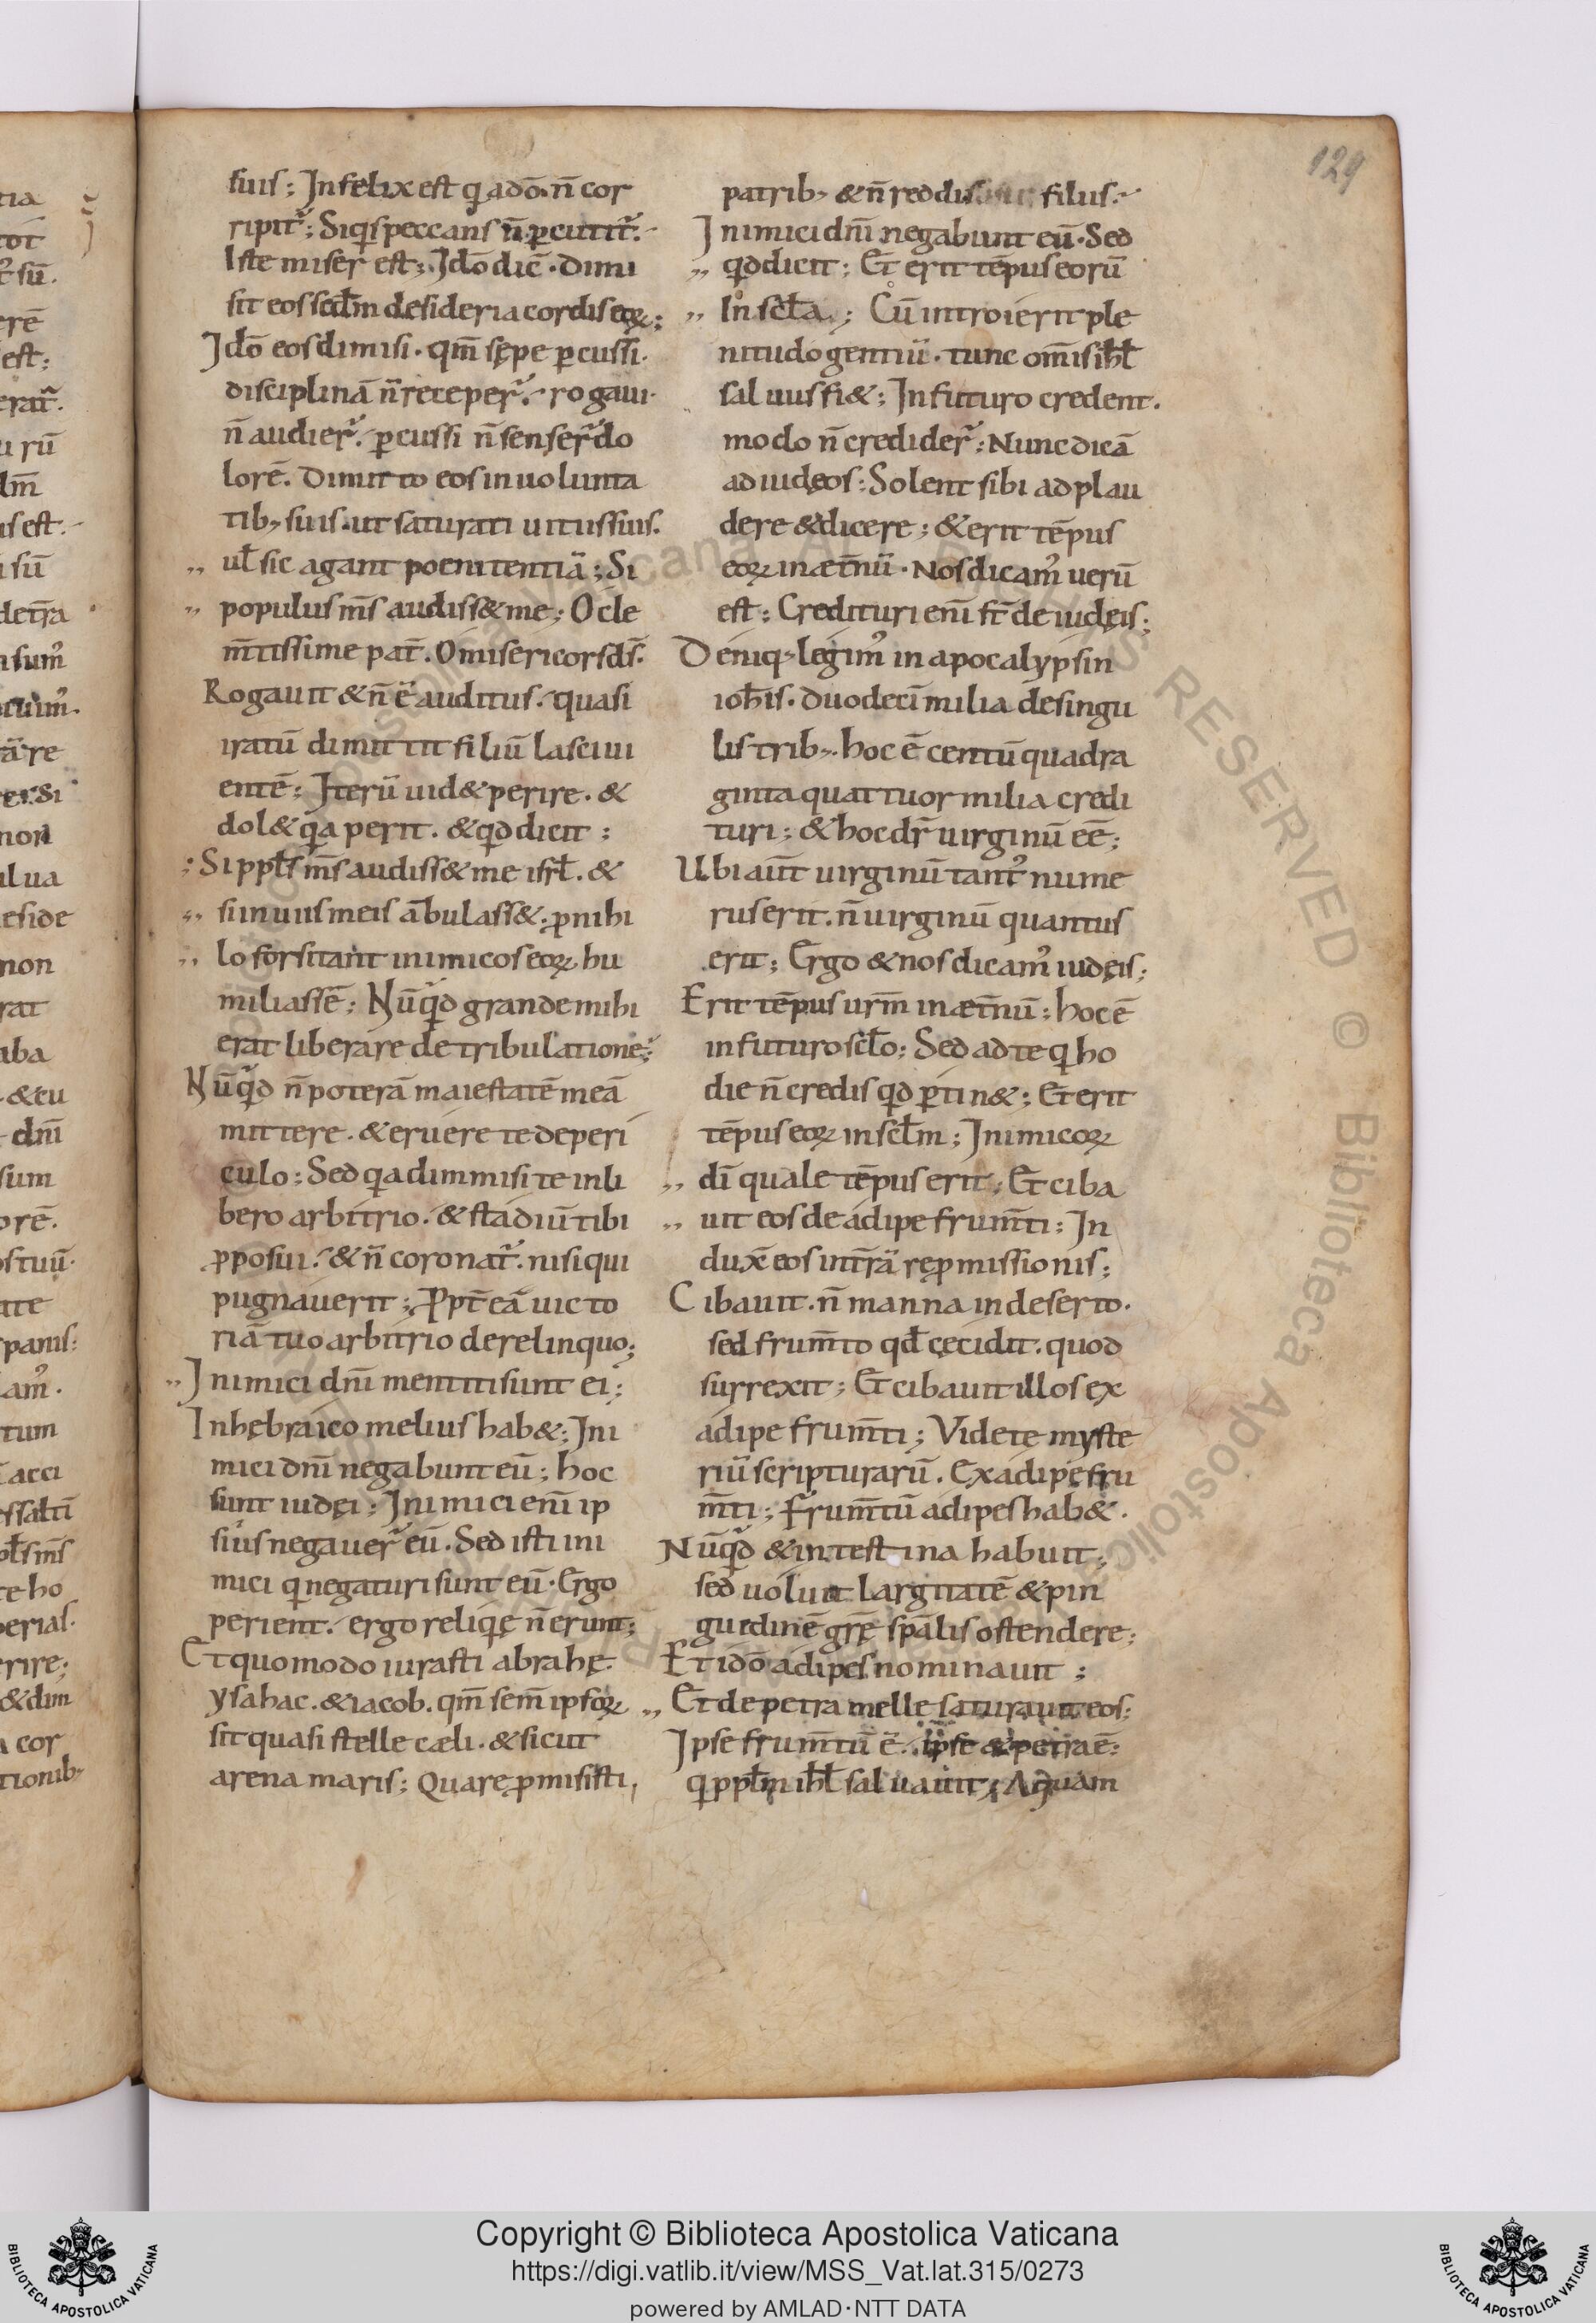 suis; Infelix est q̣ adō. n̄ cor
ripit᷑; Siq̣s peccans n̄ ꝑcutit᷑.
Iste miser est; Idō dic̄. dimi
sit eos scd̄m desideria cordis eoꝝ;
Idō eos dimisi. qm̄ sępe ꝑcussi.
disciplinā n̄ receper᷑. rogaui.
n̄ audier᷑. ꝑcussi n̄ senser᷑ do
lorē. Dimitto eos in uolunta
tib; suis. ut saturati uitiis suis.
„ ul̄ sic agant poenitentiā; Si
„ populus m̄s audiss& me; O cle
m̄tissime pat̄. O misericors ds̄.
Rogauit & n̄ ē auditus. quasi
iratū dimittit filiū lasciui
entē; Iterū uid& perire. &
dol& q̣a perit. & qd dicit;
: Si ppl̄s m̄s audiss& me isrl̄. &
„ si in uiis meis ābulass&. ꝓ nihi
„ lo forsitant inimicos eoꝝ hu
miliassē; Nūq̣d grande mihi
erat liberare de tribulatione;
Nūq̣d n̄ poterā maiestatē meā
mittere. & eruere te de peri
culo; Sed q̣a dimmisi te in li
bero arbitrio. & stadiū tibi
ꝓposui. & n̄ coronat᷑. nisi qui
pugnauerit; Ꝓpt̄ eā uicto
riā tuo arbitrio derelinquo;
„ Inimici dn̄i mentiti sunt ei;
In hębraico melius hab&; Ini
mici dn̄i negabunt eū; hoc
sunt iudęi; Inimici eni̅ ip
sius negauer᷑ eū. Sed isti ini
mici q̣ negaturi sunt eū. Ergo
perient. ergo reliq̣ę n̄ erunt;
Et quomodo iurasti abrahę.
ysahac. & iacob. qm̄ sem̄ ipsoꝝ
sit quasi stelle cæli. & sicut
arena maris; Quare ꝓmisisti
patrib; & n̄ reddis filiis.
Inimici dn̄i negabunt eū. Sed
„ qd dicit; Et̄ erit tēpus eorū
„ In scl̄a; Cū introierit ple
nitudo gentiū. tunc om̄is ihl̄
saluus fi&; In futuro credent.
modo n̄ credider᷑; Nunc dicā
ad iudęos; Solent sibi adplau
dere & dicere; & erit tēpus
eoꝝ in æt̄nū. Nos dicam᷒ uerū
est; Credituri eni̅ st̄ de iudęis;
Deniq; legim᷒ in apocalypsin
ioh̄is. duodeci̅ milia de singu
lis trib;. hoc ē centū quadra
ginta quattuor milia credi
turi; & hoc dr̄ uirginū eē;
Ubi aūt uirginū tant᷒ nume
rus erit. n̄ uirginū quantus
erit; Ergo & nos dicam᷒ iudęis;
Erit tēpus urm̄ in æt̄nū; hoc ē
in futuro scl̄o; Sed ad te q̣ ho
die n̄ credis qd ꝑtin&; Et erit
tēpus eoꝝ in scl̄m; Inimicoꝝ
„ di̅ quale tēpus erit; Et ciba
„ uit eos de adipe frum̄ti; In
dux̄ eos in t̄rā rępmissionis;
Cibauit. n̄ manna in deserto.
sed frum̄to qd̄ cęcidit. quod
surrexit; Et cibauit illos ex
adipe frum̄ti; Videte myste
riū scripturarū. Ex adipe fru
m̄ti; frum̄tū adipes hab&.
Nūq̣d & intestina habuit;
sed uoluit largitatē & pin
guedinē gr̄ę spālis ostendere;
Et idō adipes nominauit;
„ Et de petra melle saturauit eos;
Ipse frum̄tū ē. ipse & petra ē;
q̣ ppl̄m ihl̄ saluauit; Aquam
129
tia
tot
sū.
erē
est;
erat᷑.
u rū
dm̄
is est.
sū
det̄ra
sum᷒
re
non
ilua
eside
non
rat
aba
& eu
dn̄i
sum
orē.
os tuū.
ate
panis:
am᷒.
tum
acci
essalti̅
pl̄s m̄s
te ho
perias.
rire;
& dim
cor
tionib;
© Biblioteca Apostolica Vaticana ALL RIGHTS RESERVED
BIBLIOTECA APOSTOLICA VATICANA
Copyright © Biblioteca Apostolica Vaticana
https://digi.vatlib.it/view/MSS_Vat.lat.315/0273
powered by AMLAD·NTT DATA
BIBLIOTECA APOSTOLICA VATICANA